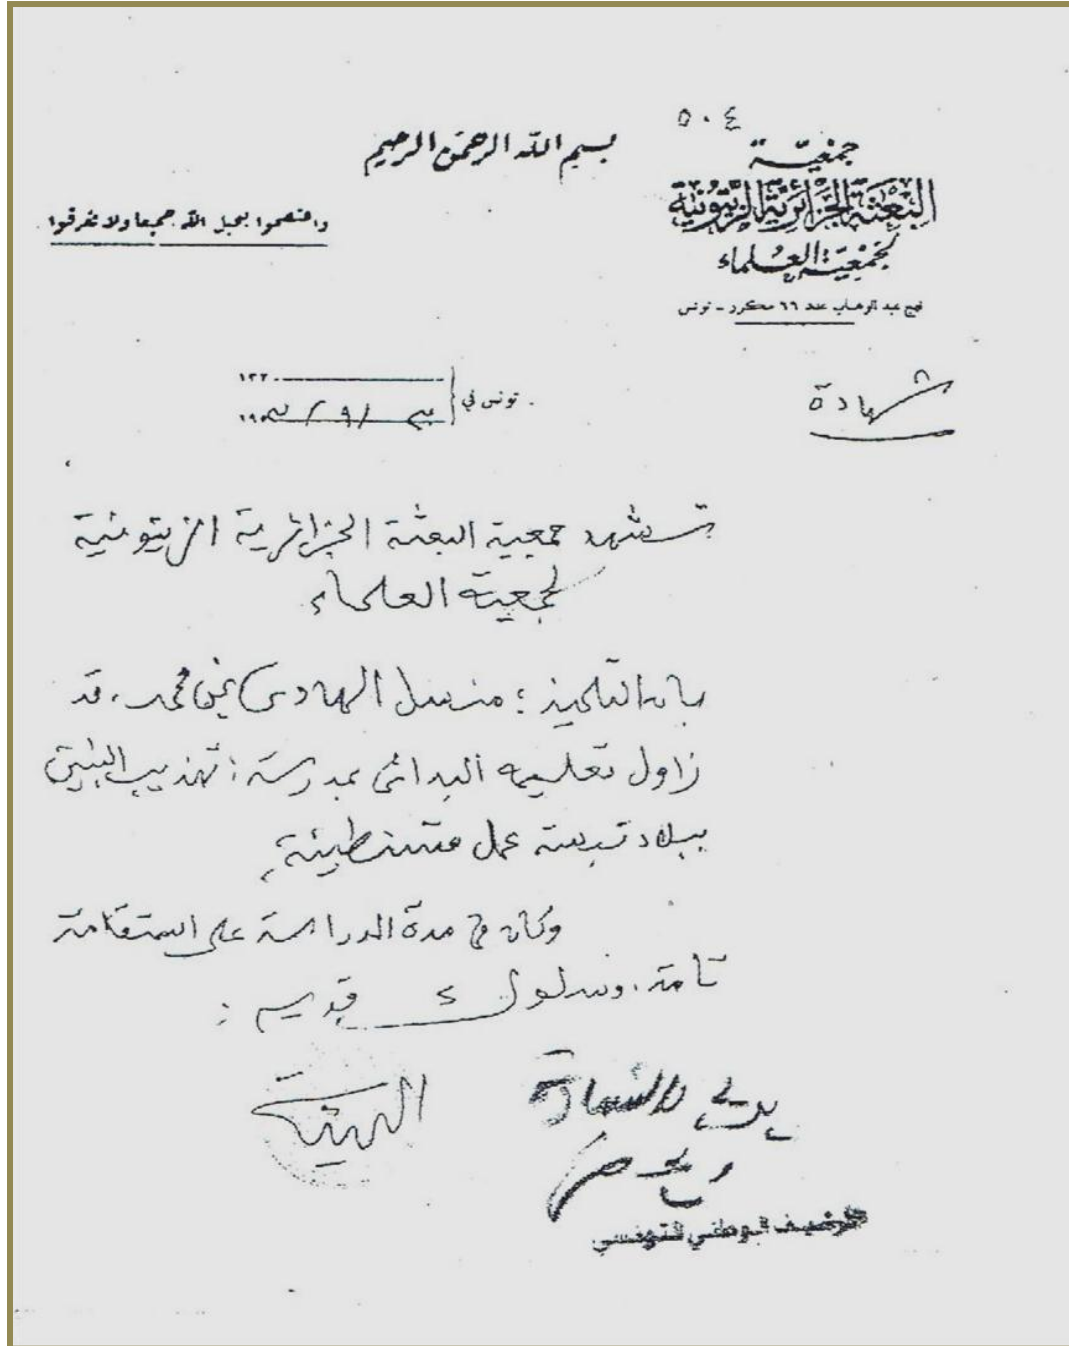 ٥٠٤
بسم الله الرحمن الرحيم
جمعية
البعثة الجزائرية الزيتونية
لجمعية العلماء
نهج عبد الوهاب عدد ٦٦ مكرر - تونس
واعتصموا بحبل الله جميعا ولا تفرقوا
تونس في
شهادة
تشهد جمعية البعثة الجزائرية الزيتونية
لجمعية العلماء
بان التلميذ : الهادي بن محمد، قد
زاول تعليمه البدائي بمدرسة : تهذيب البنين
ببلاد تبسة عمل قسنطينة
وكان في مدة الدراسة على استقامة
تامة، وسلوك قويم :
الهيئة
الارشيف الوطني التونسي